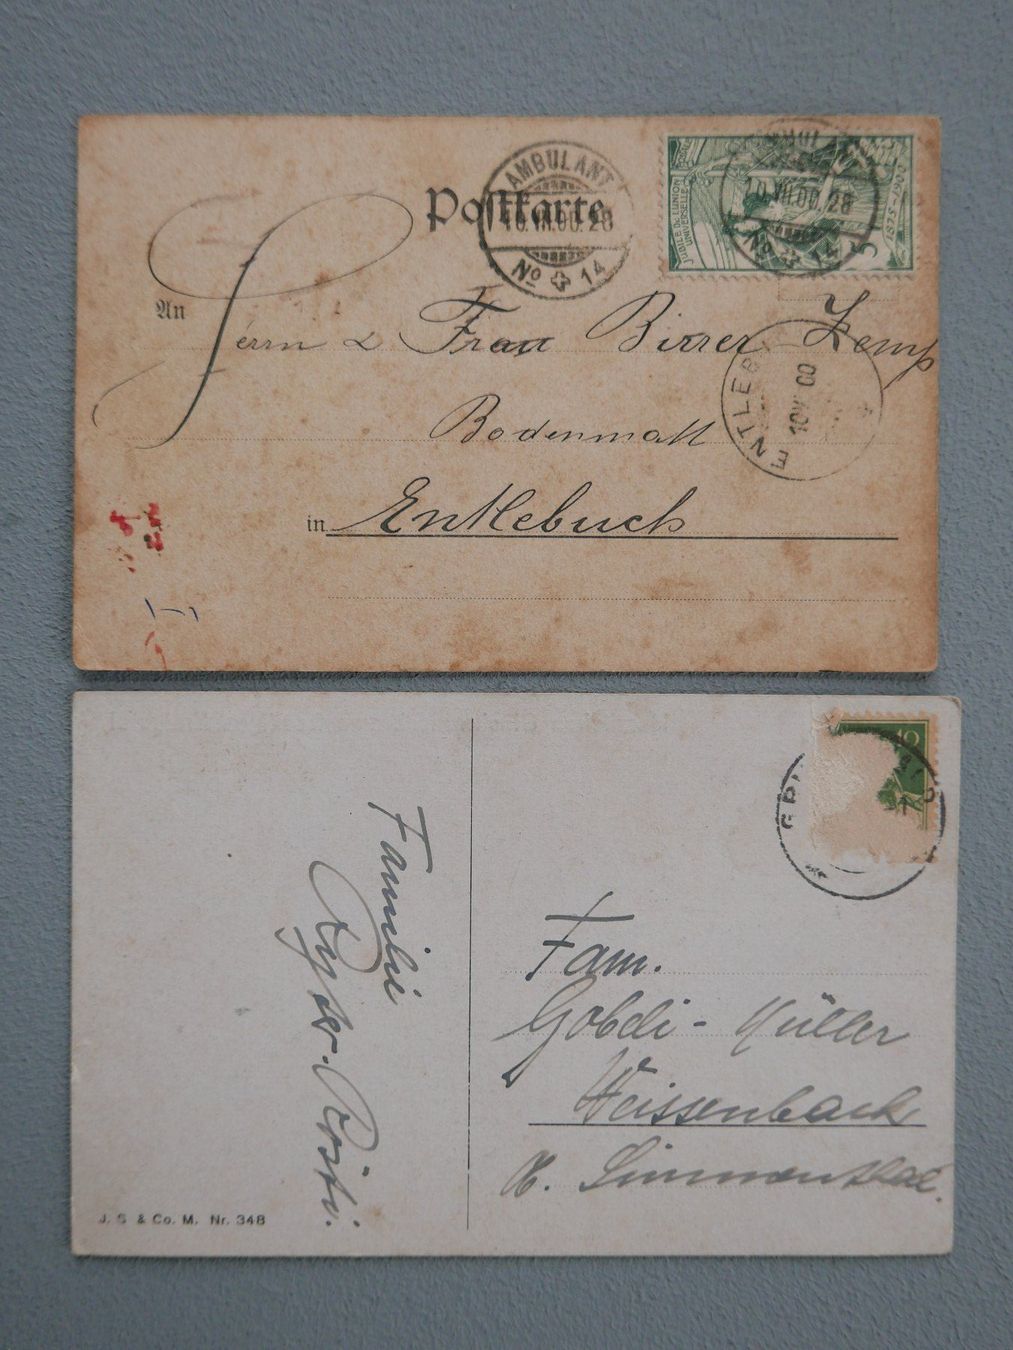 Postkarte
AMBULANT
10.VII.00.28
No 14
AMBULANT
10.VII.00.28
No 14
JUBILÉ DE L'UNION
UNIVERSELLE
POSTALE
1875-1900
5
An
Herrn & Frau Birrer Zemp
Bodenmatt
in Entlebuch
ENTLEB
10 VII 00
10
Fam.
Gobeli - Müller
Weissenbach
Simmenthal.
Familie
J. S & Co. M. Nr. 348